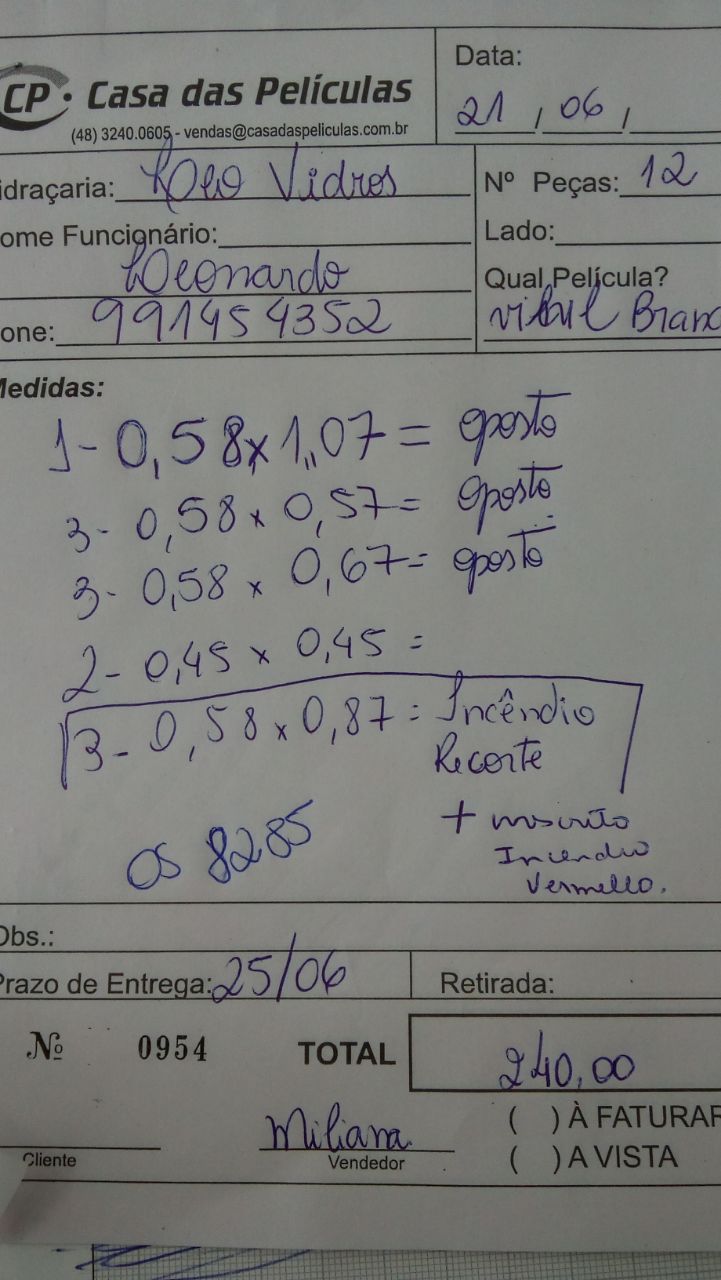 CP · Casa das Películas
(48) 3240.0605 - vendas@casadaspeliculas.com.br
Data:
21 / 06 /
idraçaria: Leo Vidros
Nº Peças: 12
ome Funcionário:
Leonardo
Lado:
one: 991454352
Qual Película?
Branc
Medidas:
1- 0,58 x 1,07 = oposto
3- 0,58 x 0,57 = oposto
3- 0,58 x 0,67 = oposto
2- 0,45 x 0,45 =
3- 0,58 x 0,87 = Incêndio
Recorte
+ inscrito
Incendio
Vermello.
OS 8285
Obs.:
Prazo de Entrega: 25/06
Retirada:
Nº 0954
TOTAL 240,00
Miliana
Cliente
Vendedor
( ) À FATURAR
( ) A VISTA